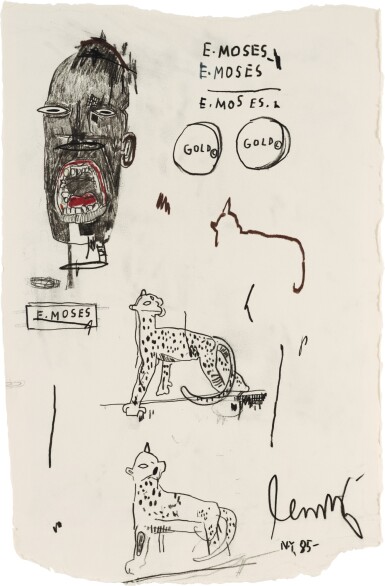 E. MOSES
E. MOSES
E. MOSES.
GOLD©
GOLD©
E. MOSES
NY, 85-